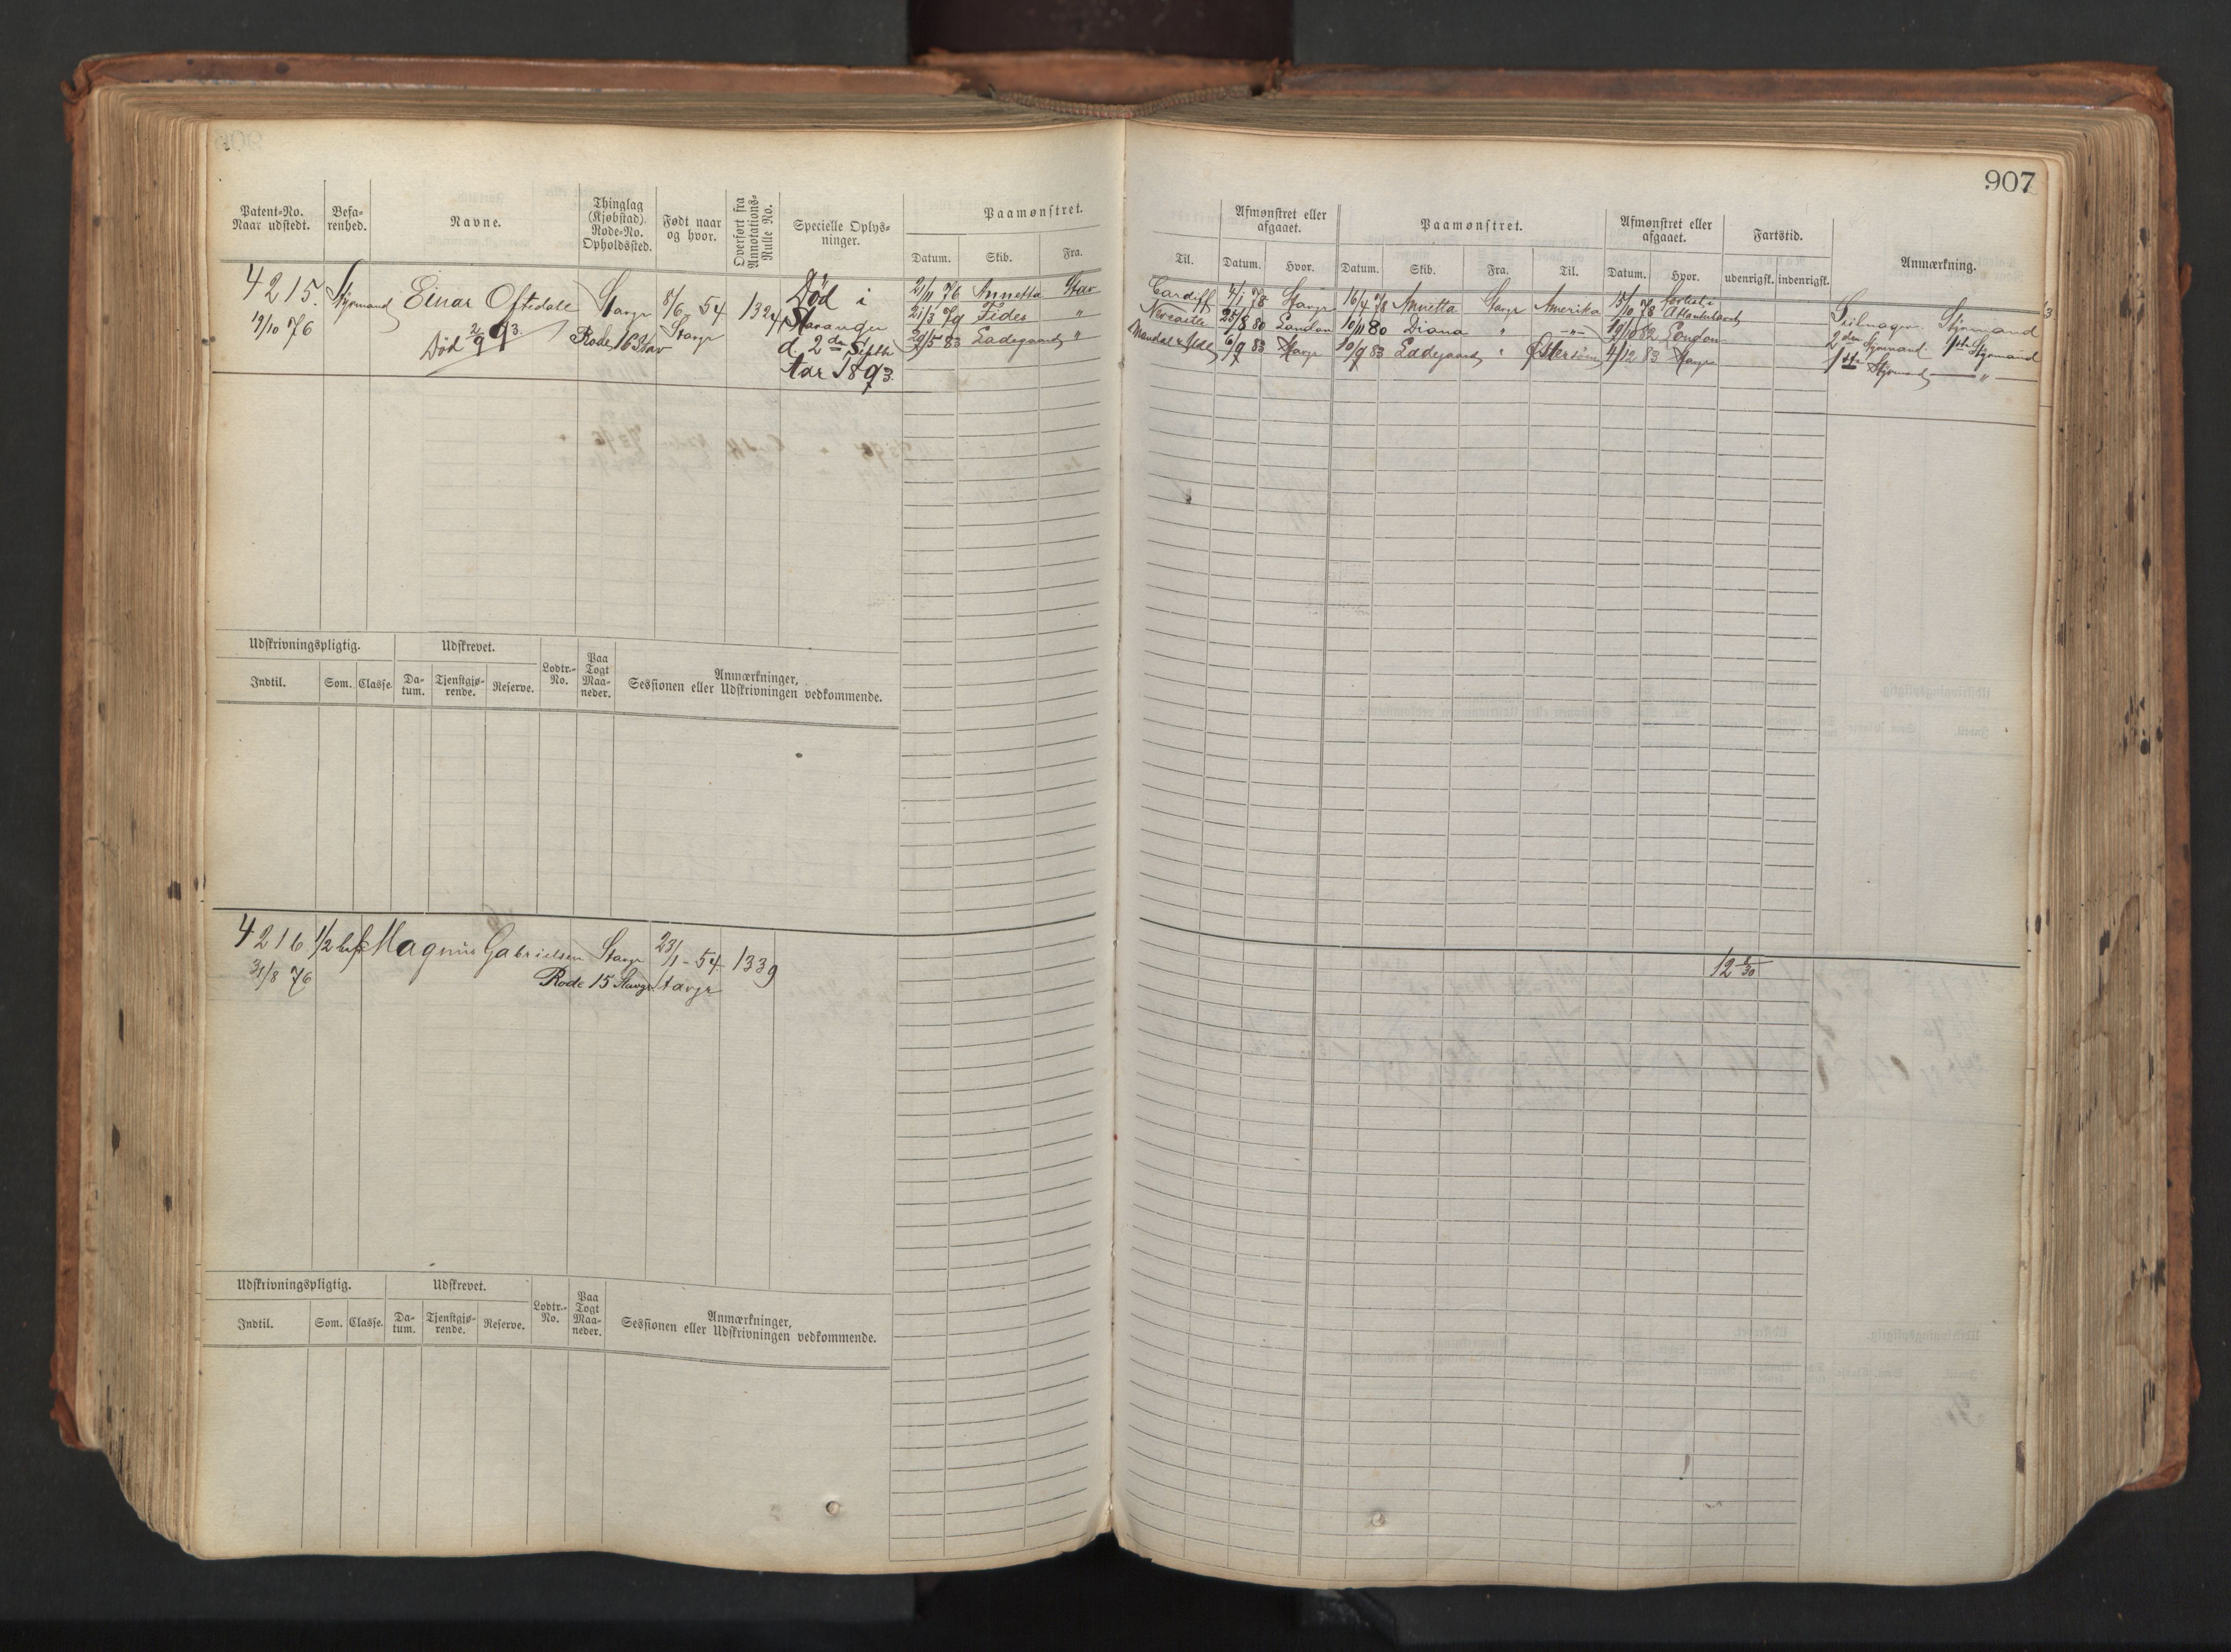 907
Patent-No. Naar udstedt.
Befarenhed.
Navne.
Thinglag (Kjøbstad). Rode-No. Opholdssted.
Født naar og hvor.
Overført fra Annotations-Rulle No.
Specielle Oplysninger.
Paamønstret.
Datum. Skib. Fra.
Til.
Afmønstret eller afgaaet.
Datum. Hvor.
Paamønstret.
Datum. Skib. Fra. Til.
Afmønstret eller afgaaet.
Datum. Hvor.
Fartstid.
udenrigsk. indenrigsk.
Anmærkning.
4215. Styrmand Einar Oftedahl Stavgr 8/6 54 1324
19/10 76 Død 2/9 93. Rode 163 Stav Stavgr
Død i
Stavanger
d. 2den Septbr
1893.
21/11 76 Annetta Stav Cardiff 4/1 78 Stavgr 16/4 78 Annetta Stavgr Amerika 15/10 78
21/3 79 Fides " Newcastle 25/8 80 London 10/11 80 Diana " -"- London
29/5 83 Ladegaard " 6/9 83 Stavgr 10/9 83 Ladegaard " Østersøen 4/12 83 Stavgr
Styrmand
2den Styrmand 1ste Styrmand
1ste Styrmand "
Udskrivningspligtig. Udskrevet.
Indtil. Som. Classe. Datum. Tjenstgjørende. Reserve. Lodtr.-No. Paa Togt Maaneder.
Anmærkninger, Sessionen eller Udskrivningen vedkommende.
4216 1/2 bef Magnus Gabrielsen Stavgr 23/1 - 54 1339
31/8 76 Rode 15 Stavgr Stavgr
12
Udskrivningspligtig. Udskrevet.
Indtil. Som. Classe. Datum. Tjenstgjørende. Reserve. Lodtr.-No. Paa Togt Maaneder.
Anmærkninger, Sessionen eller Udskrivningen vedkommende.